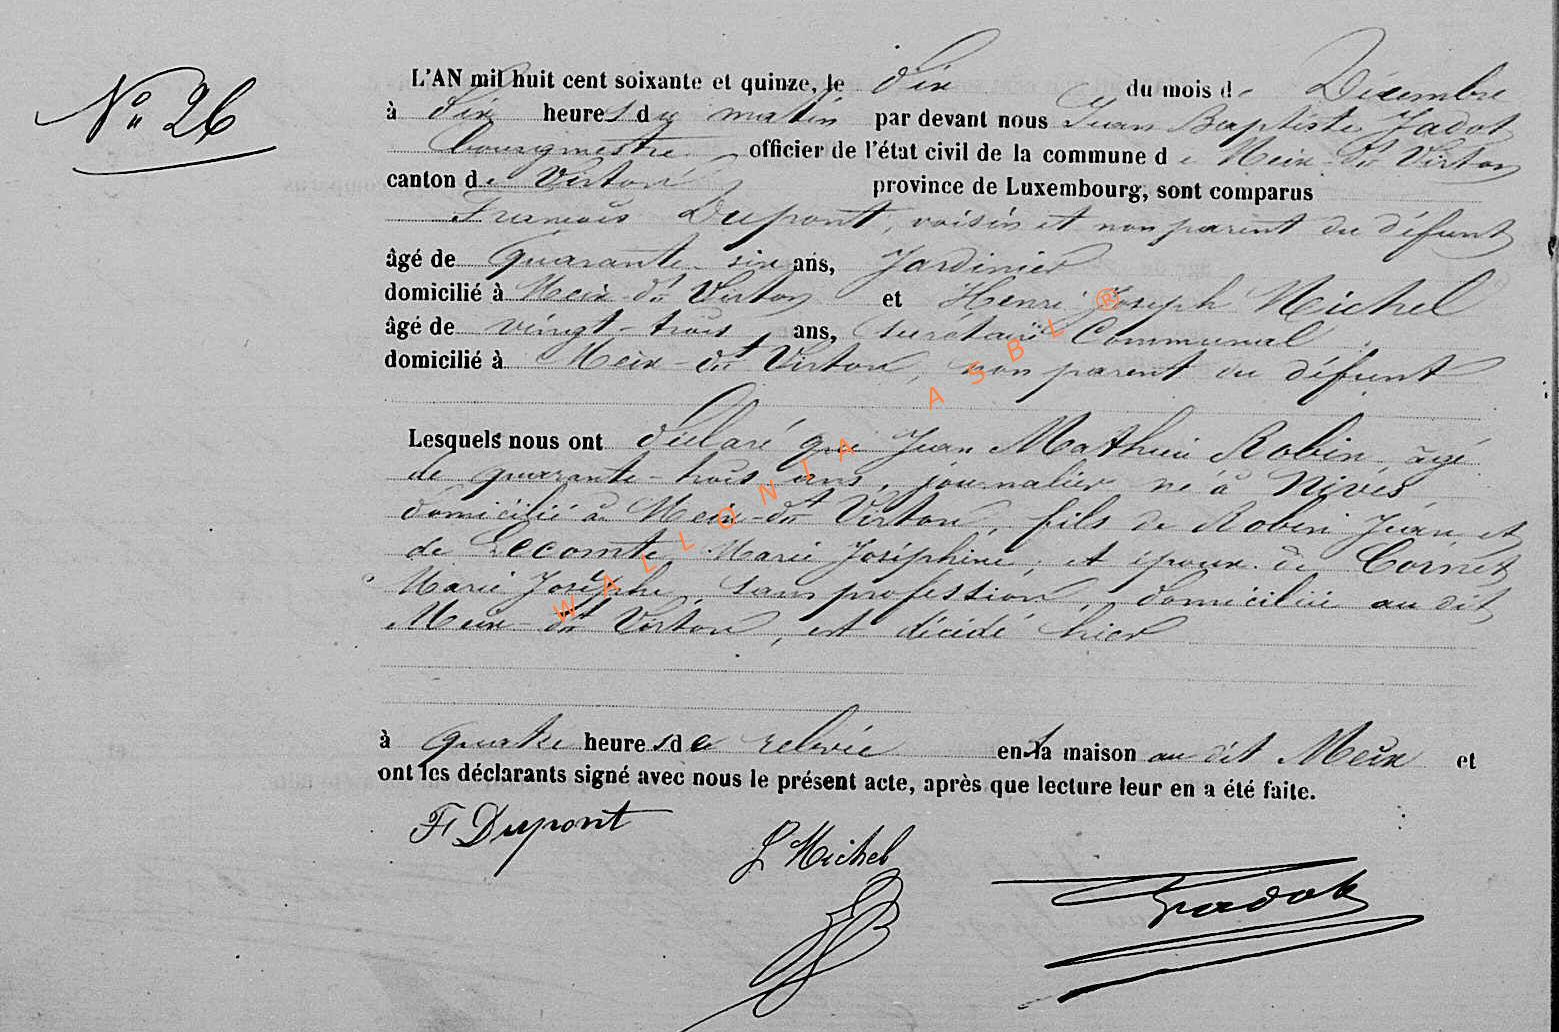 N° 26
L'AN mil huit cent soixante et quinze, le dix du mois de Décembre
à dix heures du matin par devant nous Jean Baptiste Jadot
bourgmestre officier de l'état civil de la commune de Meix-dt Virton
canton de Virton province de Luxembourg, sont comparus
François Dupont, voisin et non parent du défunt
âgé de quarante-six ans, Jardinier
domicilié à Meix-dt Virton et Henri Joseph Michel
âgé de vingt-trois ans, secrétaire Communal
domicilié à Meix-dt Virton, non parent du défunt
Lesquels nous ont déclaré que Jean Mathieu Robin, âgé
de quarante-trois ans, journalier né à Nives
domicilié à Meix-dt Virton, fils de Robin Jean et
de Lecomte Marie Joséphine, et époux de Cornet
Marie Josèphe, sans profession, domiciliée au dit
Meix-dt Virton, est décédé hier
à quatre heures de relevée en sa maison au dit Meix et
ont les déclarants signé avec nous le présent acte, après que lecture leur en a été faite.
F Dupont
J Michel
Jadot
WALLONIA ASBL ®